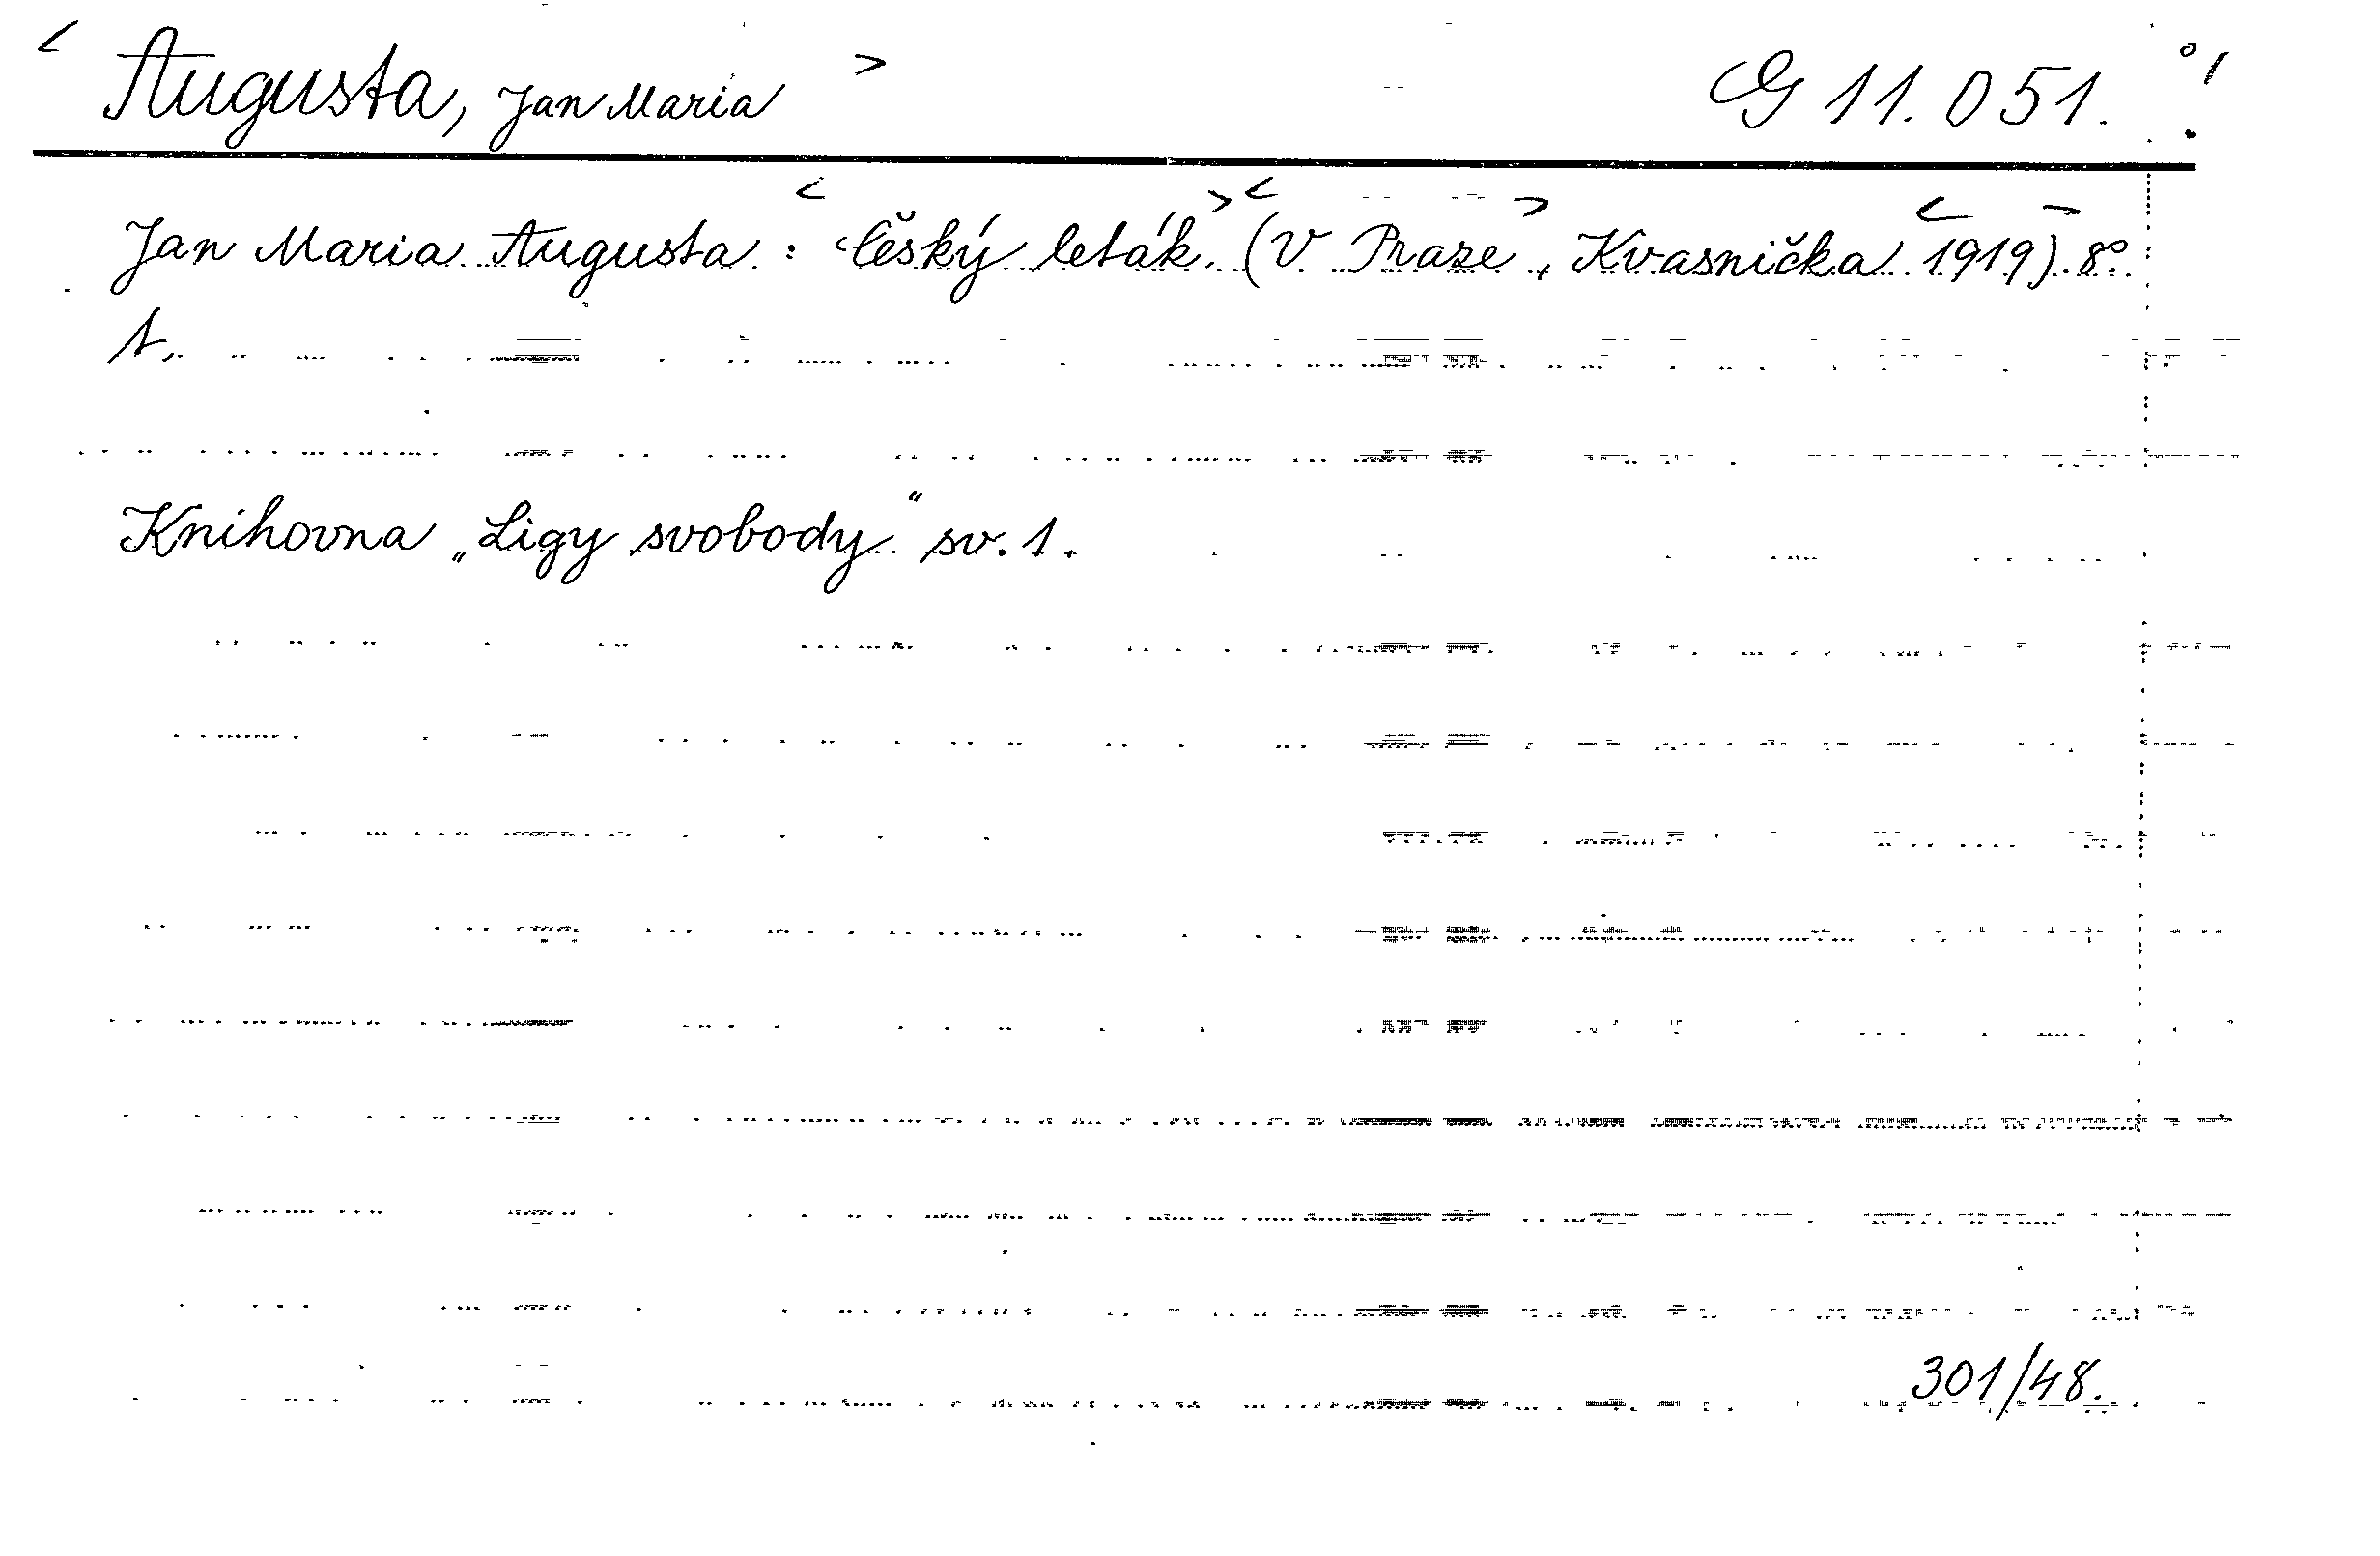 < Augusta, Jan Maria > G 11.051.
Jan Maria Augusta : <Český leták.> <(V Praze>, Kvasnička <1919). 8°.
t.
Knihovna „Ligy svobody" sv. 1.
301/48.